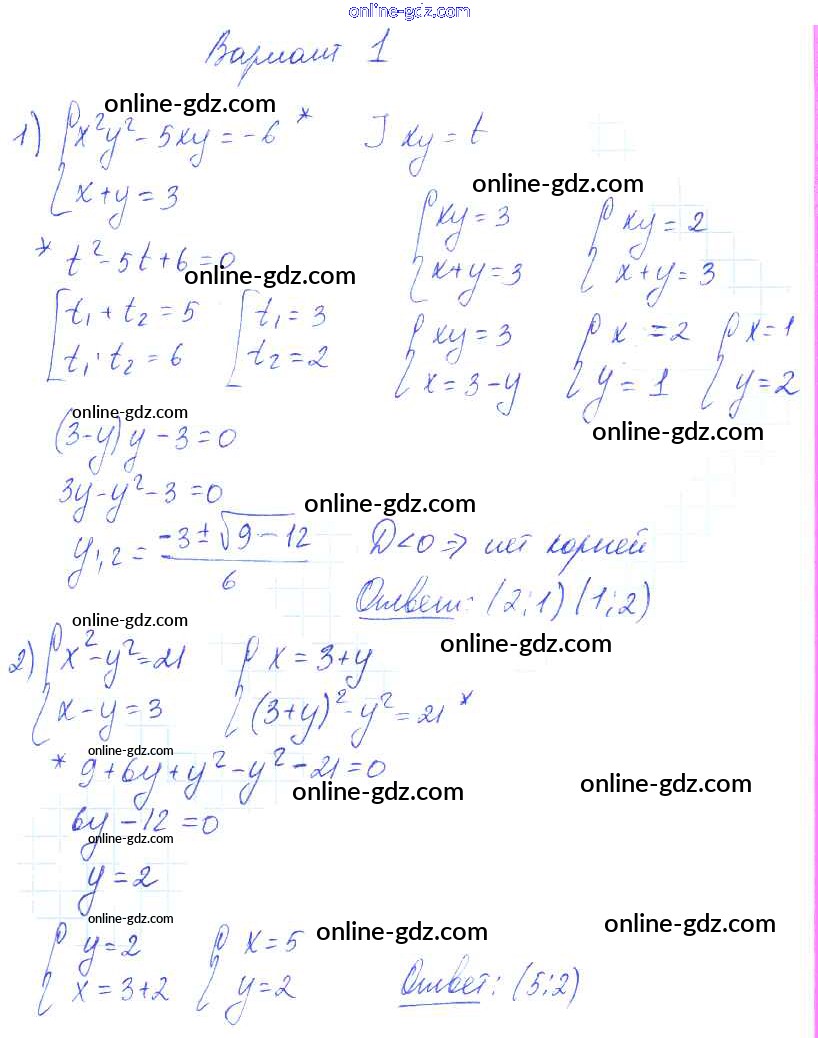 online-gdz.com
Вариант 1
online-gdz.com
1) { x²y² - 5xy = -6 *   ] xy = t
{ x + y = 3
online-gdz.com
{ xy = 3   { xy = 2
* t² - 5t + 6 = 0
online-gdz.com
{ x + y = 3   { x + y = 3
[ t₁ + t₂ = 5   [ t₁ = 3
[ t₁ · t₂ = 6   [ t₂ = 2
{ xy = 3   { x = 2   { x = 1
{ x = 3 - y   { y = 1   { y = 2
online-gdz.com
(3-y)y - 3 = 0
online-gdz.com
3y - y² - 3 = 0
online-gdz.com
y₁,₂ = (-3 ± √9-12) / 6   D<0 ⇒ нет корней
Ответ: (2;1) (1;2)
online-gdz.com
online-gdz.com
2) { x² - y² = 21   { x = 3 + y
{ x - y = 3   { (3+y)² - y² = 21 *
online-gdz.com
* 9 + 6y + y² - y² - 21 = 0
online-gdz.com
online-gdz.com
6y - 12 = 0
online-gdz.com
y = 2
online-gdz.com
online-gdz.com
online-gdz.com
{ y = 2   { x = 5
{ x = 3 + 2   { y = 2   Ответ: (5;2)